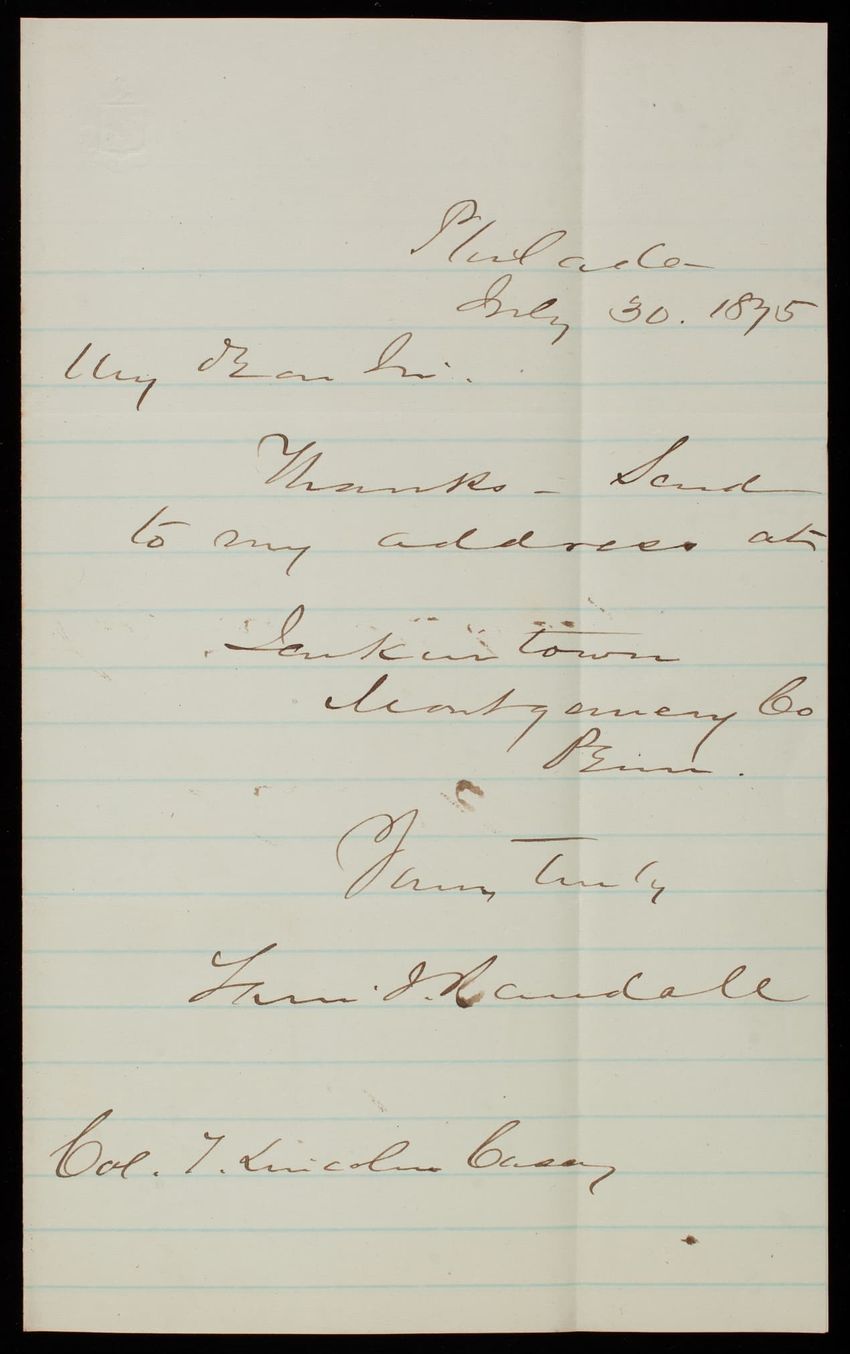 Philada
July 30. 1875
My Dear Sir.
Thanks - Send
to my address at
Jenkintown
Montgomery Co
Penn.
Yours truly
Sam. J. Randall
Col. T. Lincoln Casey